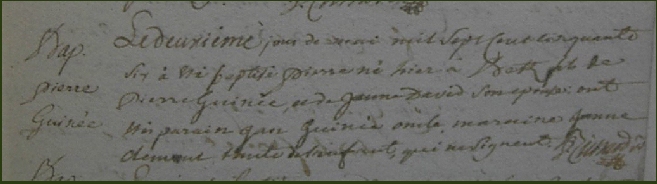 Bap.
pierre
Guinée
Le deuxième jour de mai mil Sept Cent Cinquante
Six à été baptisé pierre né hier à fils de
Pierre Guinée, et de Jeanne David Son epouse: ont
été parain Jean Guinée oncle, maraine Jeanne
Clement tante de l'enfant, qui ne Signent.
Bap